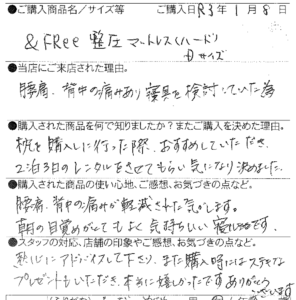 ●ご購入商品名／サイズ等 ご購入日R3年1月8日
&FRee 整圧マットレス(ハード)
サイズ
●当店にご来店された理由。
腰痛、背中の痛みあり寝具を検討していた為
●購入された商品を何で知りましたか？またご購入を決めた理由。
枕を購入しに行った際、おすすめしていただき、
2泊3日のレンタルをさせてもらい気になり決めました。
●購入された商品の使い心地、ご感想、お気づきの点など。
腰痛、背中の痛みが軽減された気がします。
朝の目覚めがとてもよく気持ちいい寝心地です。
●スタッフの対応、店舗の印象やご感想、お気づきの点など。
熱心にアドバイスして下さり、また購入時にはステキな
プレゼントもいただき、本当に嬉しかったですありがとう
ございます